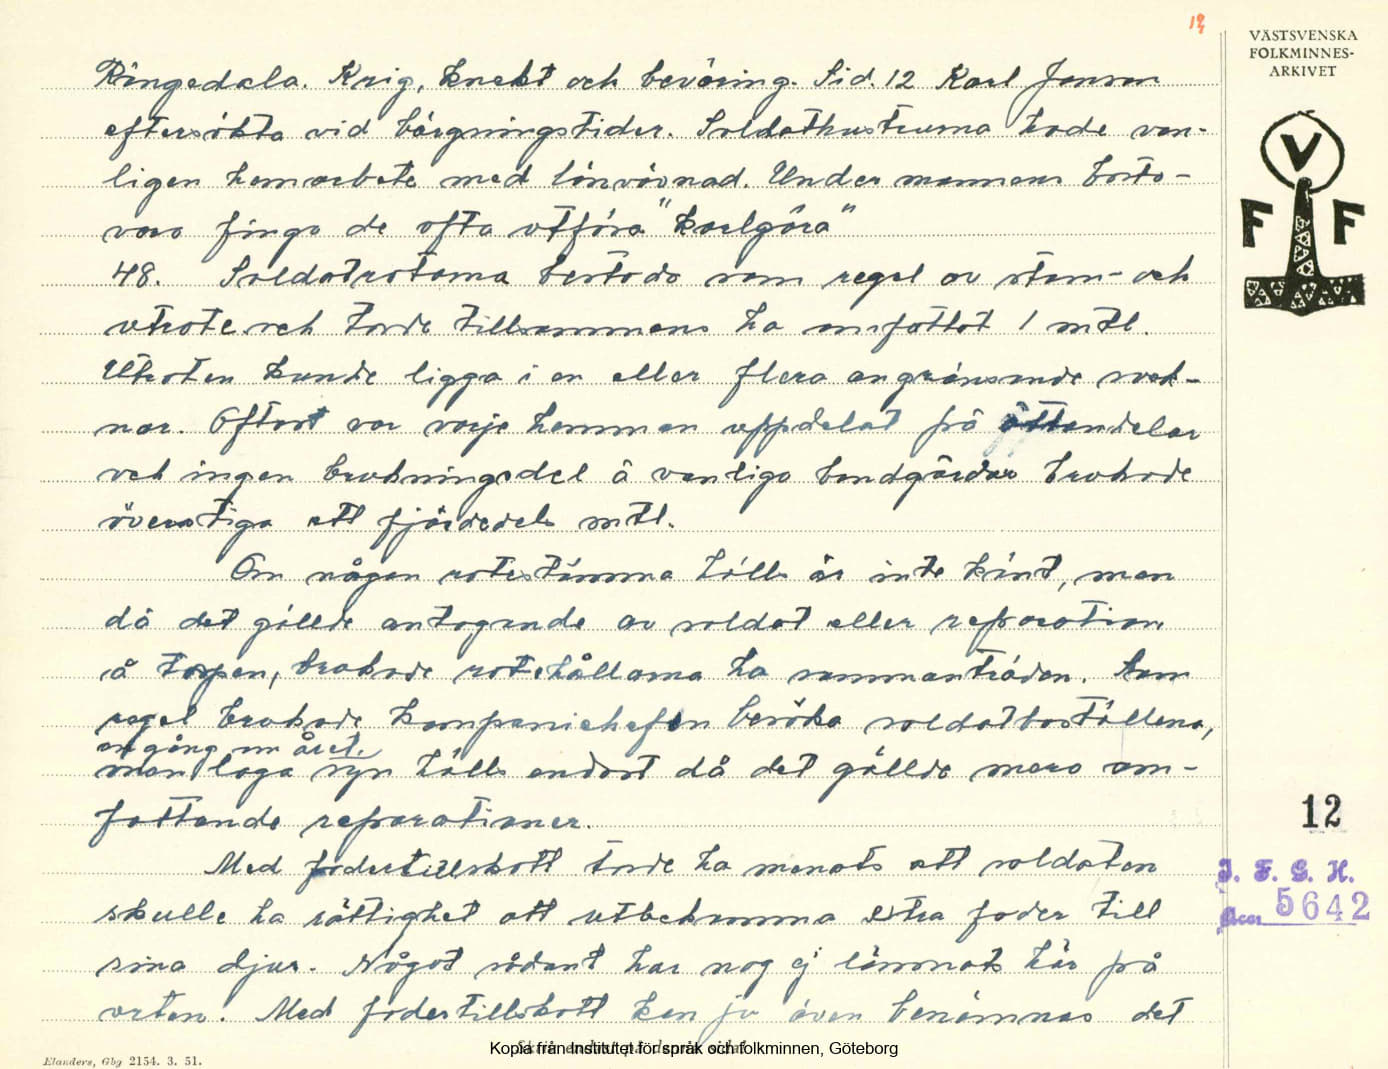 19
VÄSTSVENSKA
FOLKMINNES-
ARKIVET
V
F F
Rångedala. Krig, knekt och beväring. Sid. 12 Karl Jonson
eftersökta vid bärgningstider. Soldathustruma hade van-
ligen hemarbete med lönvävnad. Under mannens borto-
varo fingo de ofta utföra "karlgöra"
48. Soldatrotarna bestodo som regel av stam- och
utrote och torde tillsammans ha omfattat 1 mtl.
Utroten kunde ligga i en eller flera angränsande sock-
nar. Oftast var varje hemman uppdelat på åttondelar
och ingen brukningsdel å vanliga bondgårdar brukade
överstiga ett fjärdedels mtl.
Om någon rotestämma hölls är inte känt, men
då det gällde antagande av soldat eller reparation
å torpen, brukade rotehållarna ha sammanträden. Som
regel brukade kompanichefen besöka soldatboställena,
en gång om året.
men laga syn hölls endast då det gällde mera om-
fattande reparationer.
Med fodertillskott torde ha menats att soldaten
skulle ha rättighet att utbekomma extra foder till
sina djur. Något sådant har nog ej lämnats här på
orten. Med fodertillskott kan ju även benämnas det
12
I. F. G. H.
Acc. 5642
Kopia från Institutet för språk och folkminnen, Göteborg
Elanders, Gbg 2154. 3. 51.